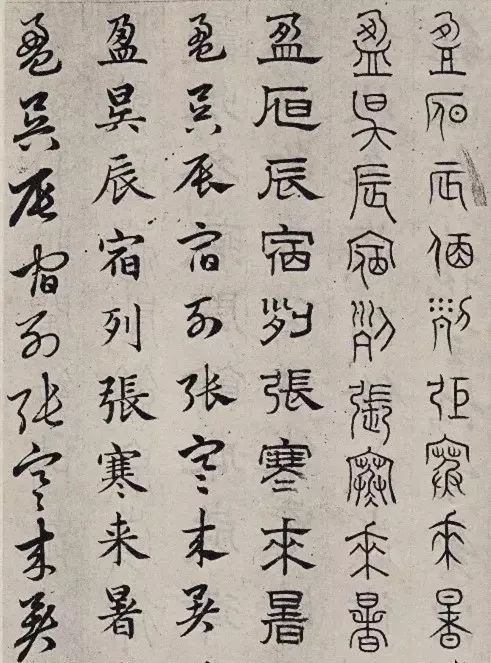 盈昃辰宿列張寒來暑
盈昃辰宿列張寒來暑
盈昃辰宿列張寒來暑
盈昃辰宿列張寒来暑
盈昃辰宿列張寒来暑
盈昃辰宿列張寒来暑